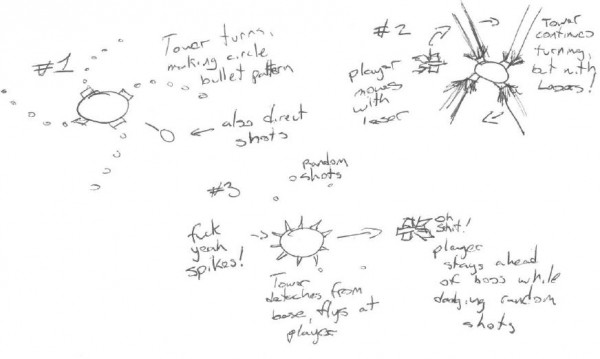 #1
Tower turns,
making circle
bullet pattern
also direct
shots
#2
player
moves
with
laser
Tower
continues
turning,
but with
lasers!
#3
random
shots
fuck
yeah
spikes!
Tower
detaches from
base, flys at
player
oh
shit!
player
stays ahead
of boss while
dodging random
shots